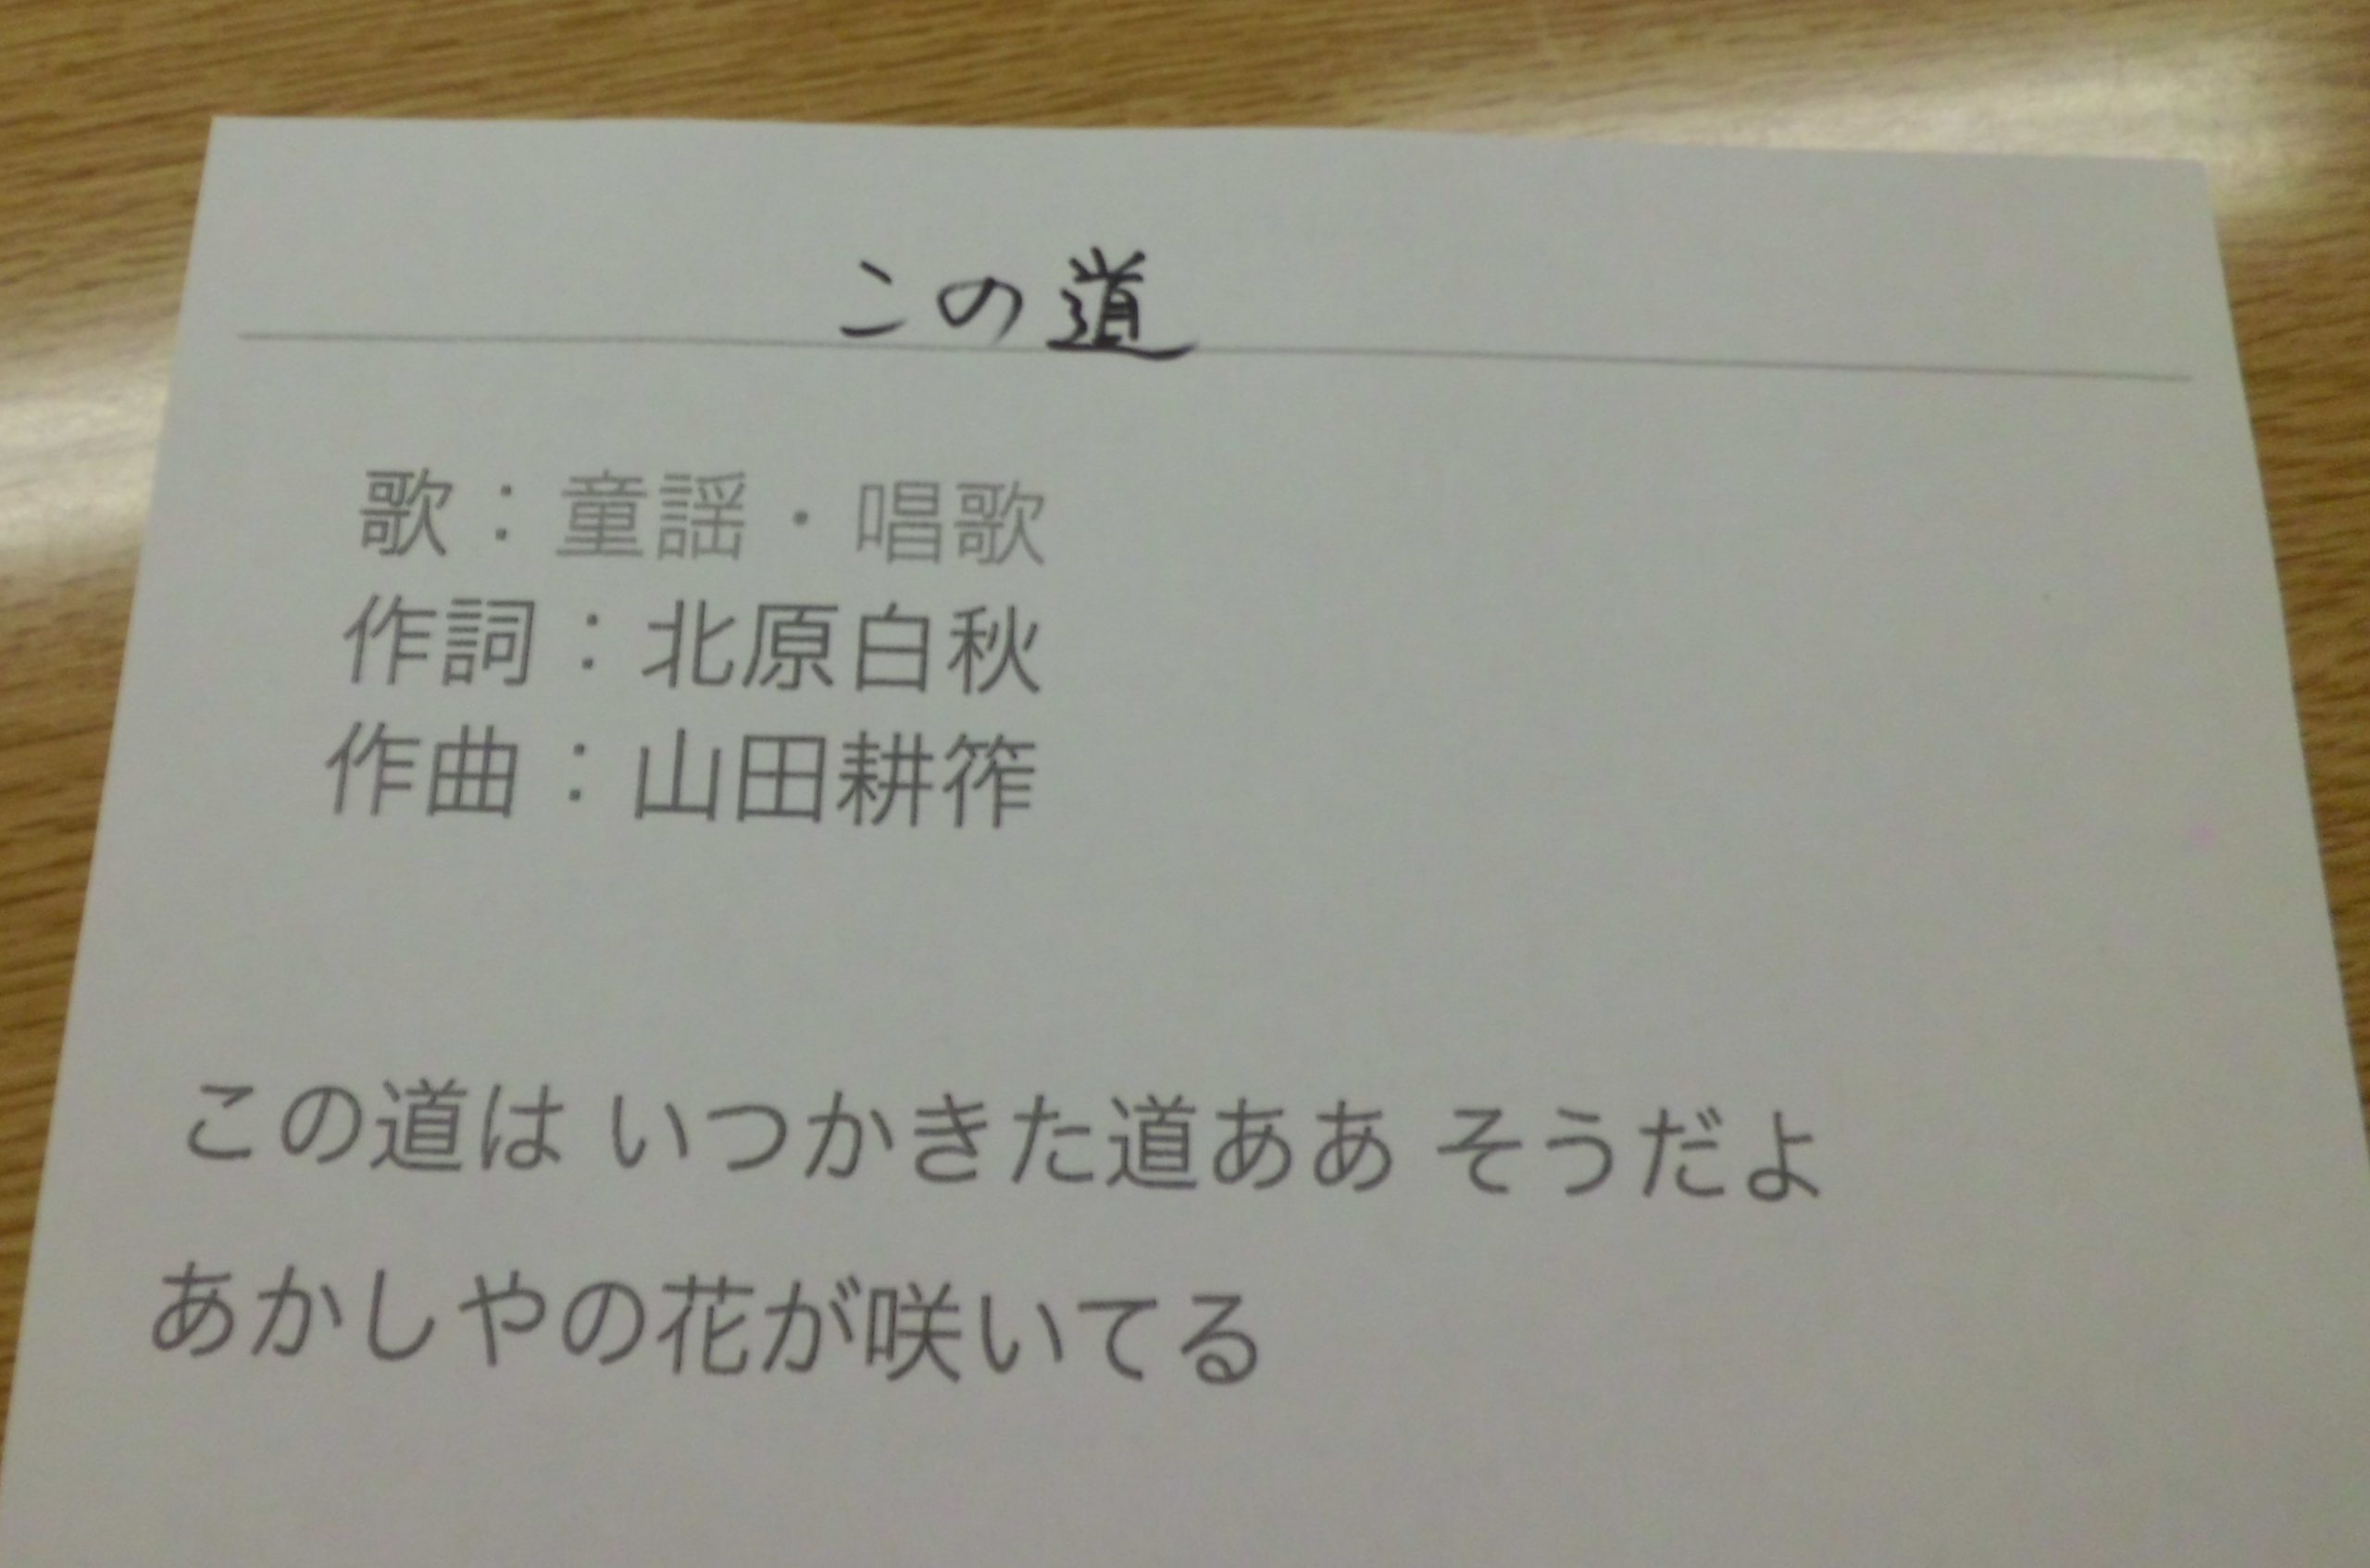 この道
歌：童謡・唱歌
作詞：北原白秋
作曲：山田耕筰
この道は いつかきた道ああ そうだよ
あかしやの花が咲いてる